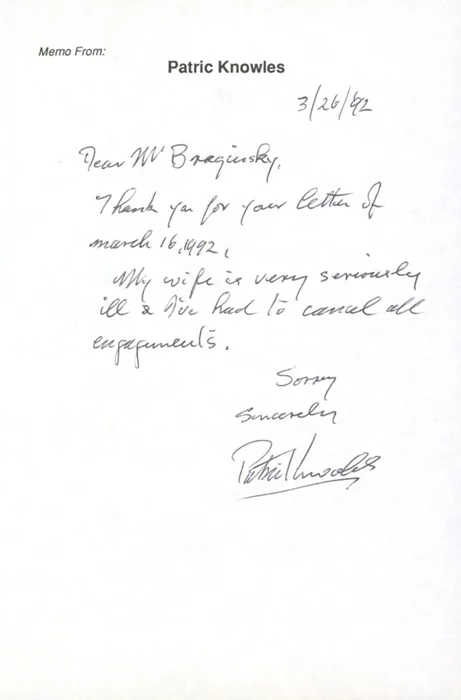 Memo From:
Patric Knowles
3/26/92
Dear Mr Braginsky,
Thank you for your letter of
march 16, 1992,
My wife is very seriously
ill & I've had to cancel all
engagements.
Sorry
Sincerely
Patric Knowles